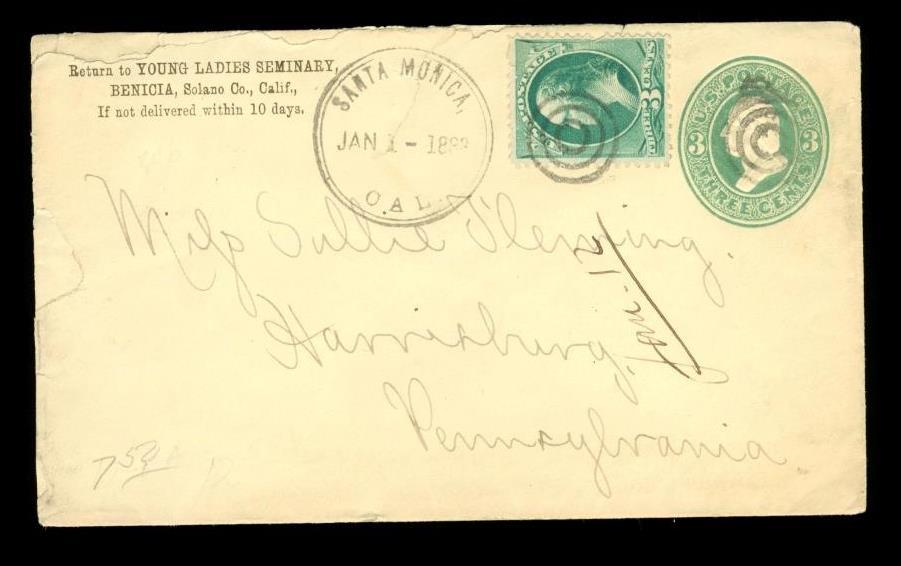 Return to YOUNG LADIES SEMINARY,
BENICIA, Solano Co., Calif.,
If not delivered within 10 days.
SANTA MONICA,
JAN 1 - 188
CAL.
POSTAGE
3
U.S. POSTAGE
3 3
THREE CENTS
Miss Sallie Fleming.
Harrisburg,
Pennsylvania
Jan. 12
7 50